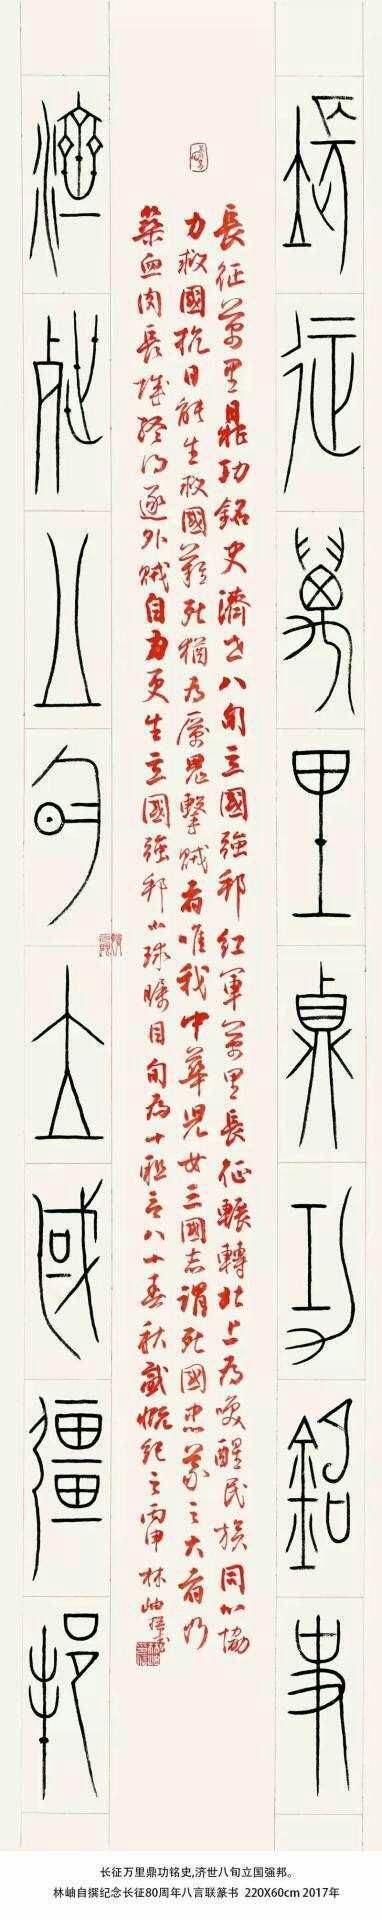 長征萬里鼎功銘史
長征萬里鼎功銘史濟世八旬立國強邦紅軍萬里長征輾轉北上為喚醒民族同心協
力救國抗日能生救國難死猶為厲鬼擊賊者唯我中華兒女三國志謂死國忠義之大者乃
築血肉長城終得逐外賊自力更生立國強邦球矚目旬為十八十春秋感慨紀之丙申林岫撰書
濟世八旬立國彊邦
长征万里鼎功铭史,济世八旬立国强邦。
林岫自撰纪念长征80周年八言联篆书 220X60cm 2017年